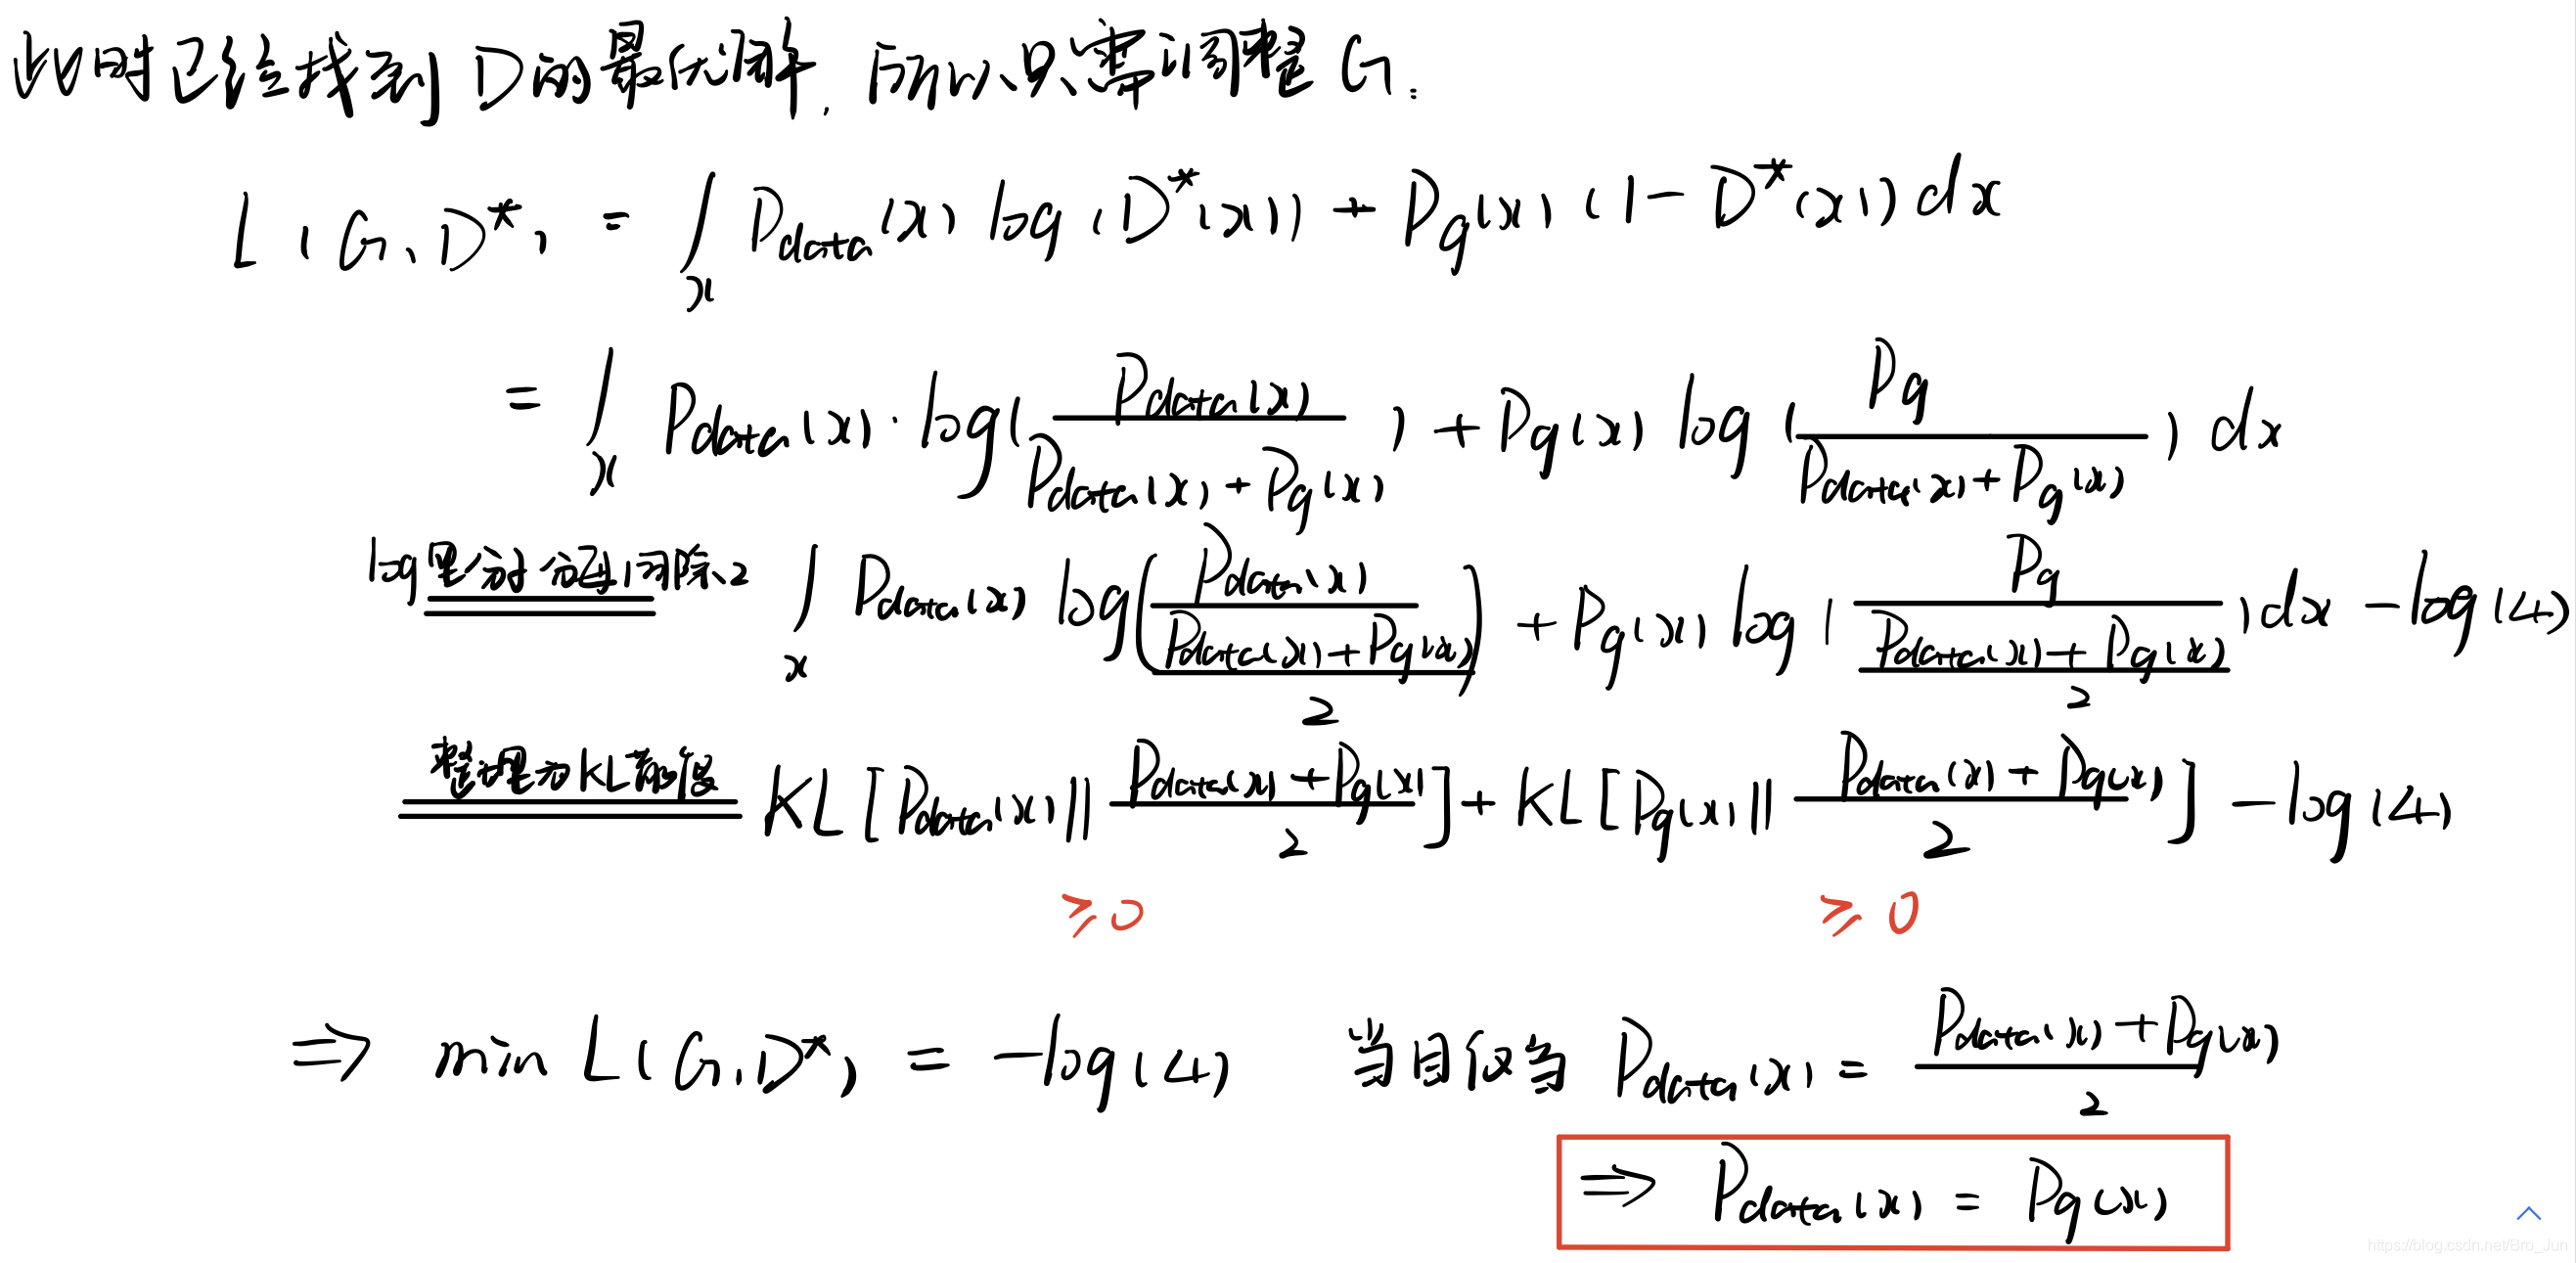 此时已经找到 D的最优解, 所以只需调整 G:
L(G, D*) = ∫_x P_data(x) log(D*(x)) + P_g(x) (1 - D*(x)) dx
= ∫_x P_data(x) · log( P_data(x) / (P_data(x) + P_g(x)) ) + P_g(x) log( P_g / (P_data(x) + P_g(x)) ) dx
log里分子分母同除2 = ∫_x P_data(x) log( P_data(x) / ((P_data(x) + P_g(x)) / 2) ) + P_g(x) log( P_g / ((P_data(x) + P_g(x)) / 2) ) dx - log(4)
整理为KL散度 = KL[P_data(x) || (P_data(x) + P_g(x)) / 2] + KL[P_g(x) || (P_data(x) + P_g(x)) / 2] - log(4)
≥0 ≥0
⇒ min L(G, D*) = -log(4) 当且仅当 P_data(x) = (P_data(x) + P_g(x)) / 2
⇒ P_data(x) = P_g(x)
https://blog.csdn.net/Bro_Jun